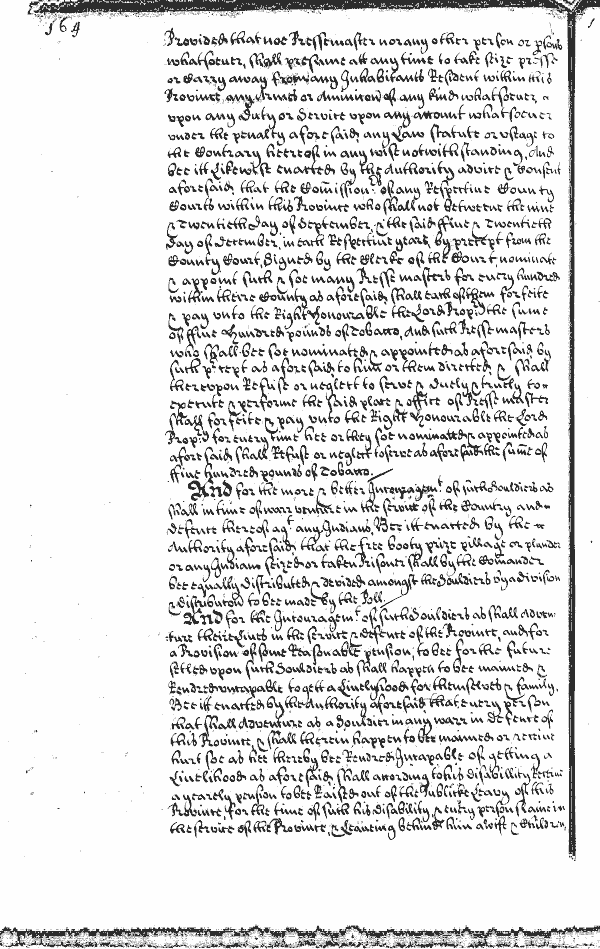 164
Provided that noe Pressemaster nor any other person or psons
whatsoever, shall presume att any time to take seize presse
or Carry away from any Inhabitants Resident within this
Province, any Armes or Amunicon of any kind whatsoever
upon any Duty or Service upon any account whatsoever
under the penalty aforesaid, any Law statute or usage to
the Contrary heereof in any wise notwithstanding, And
bee itt Likewise enacted by the Authority advice & Consent
aforesaid, that the Comission.rs of any Respective County
Courts within this Province who shall not betweene the nine
& Twentieth day of September, & the said ffive & Twentieth
day of December, in each Respective yeare, by precept from the
County Court, Signed by the Clerke of the Court nominate
& appoint such & soe many Presse masters for every hundred
within theire County as aforesaid, shall each of them forfeite
& pay unto the Right Honourable the Lord Prop.ry the sume
of ffive Hundred pounds of Tobacco, And such Presse masters
who shall bee soe nominated & appointed as aforesaid by
such precept as aforesaid to him or them directed, & shall
thereupon Refuse or neglect to serve & duely & truely to
execute & performe the said place & office of Presse master
shall forfeite & pay unto the Right Honourable the Lord
Prop.ry for every time hee or they soe nominated & appointed as
aforesaid shall Refuse or neglect to serve as aforesaid the sume of
ffive hundred pounds of Tobacco.
And for the more & better Incouragem.t of such Souldiers as
shall in time of warr venture in the service of the Country and
defence thereof ag.t any Indians, Bee itt enacted by the
Authority aforesaid, that the free booty prize pillage or plunder
or any Indians seized or taken Prisoner shall by the Comander
bee equally distributed & devided amongst the Souldiers by a division
& distribucon to bee made by the Poll.
And for the Incouragem.t of such Souldiers as shall Adven-
ture theire Lives in the service & defence of the Province, and for
a Provision of some Reasonable pension, to bee for the future
setled upon such Souldiers as shall happen to bee maimed &
Rendred uncapable to gett a Livelyhood for themselves & family,
Bee itt enacted by the Authority aforesaid, that every person
that shall Adventure as a Souldier in any warr in defence of
this Province, & shall therein happen to bee maimed or receive
hurt soe as hee thereby bee Rendred Incapable of getting a
Livelihood as aforesaid, shall according to his disabillity Receive
a yearely pension to bee Raised out of the Publike Leavy of this
Province, for the time of such his disability, & every person slaine in
the service of the Province, & Leaveing behind him a wife & Children,